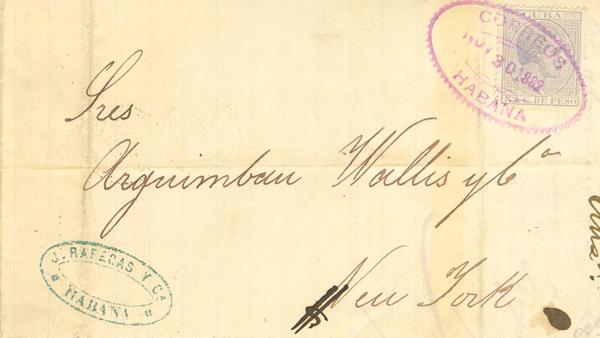 CUBA
C. DE PESO
CORREOS
NOV 30 1882
HABANA
Sres
Arguimbau Wallis y Ca
New York
J. RAFECAS Y CA
HABANA